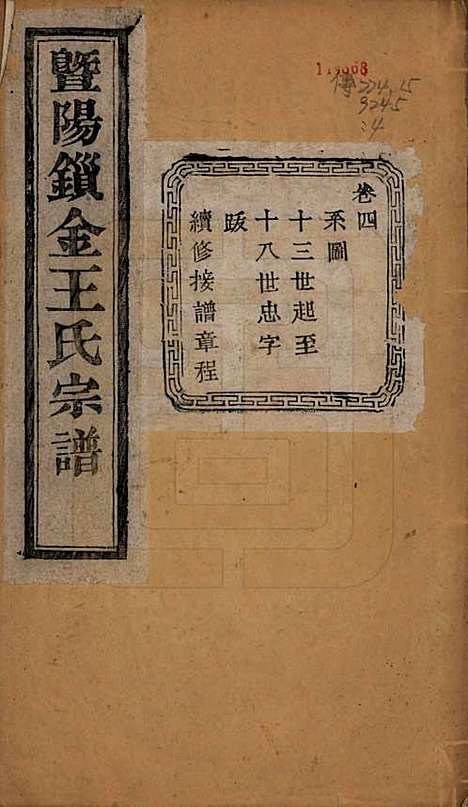 暨陽鎖金王氏宗譜
卷四
系圖
十三世起至
十八世忠字
跋
續修接譜章程
傳
224.15
9245
:4